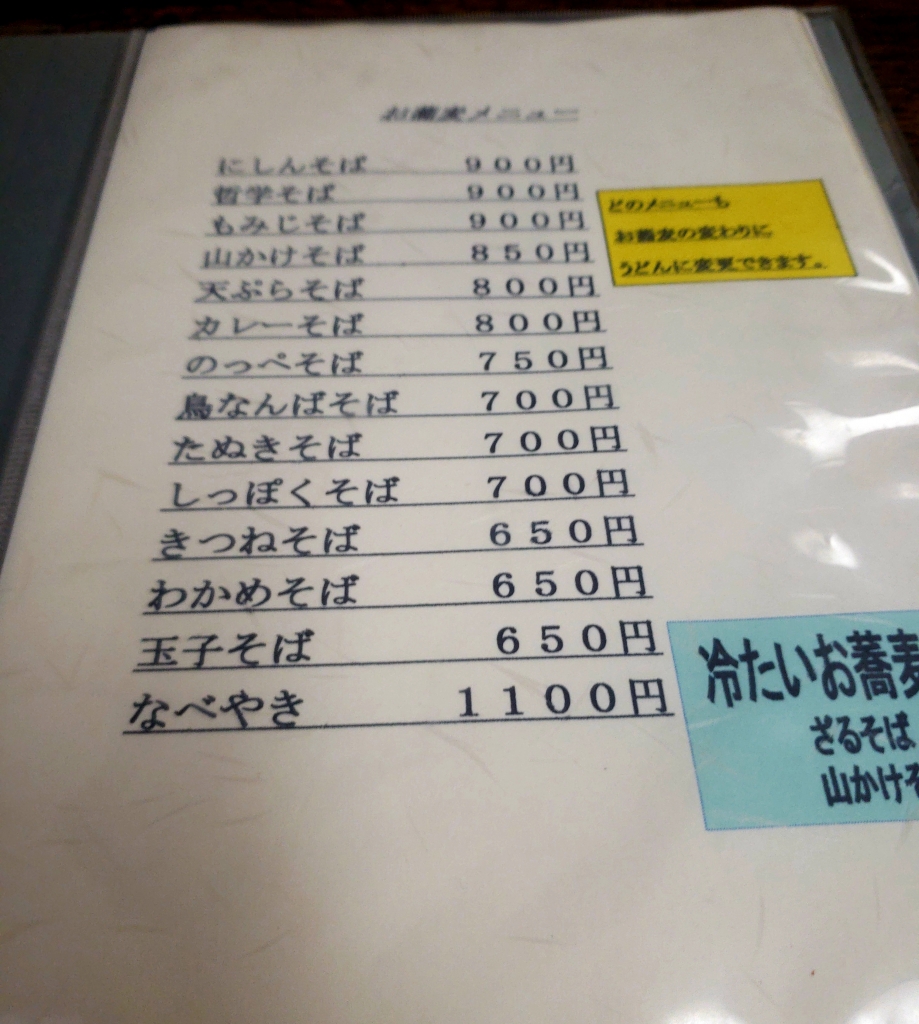 お蕎麦メニュー
にしんそば 900円
哲学そば 900円
もみじそば 900円
山かけそば 850円
天ぷらそば 800円
カレーそば 800円
のっぺそば 750円
鳥なんばそば 700円
たぬきそば 700円
しっぽくそば 700円
きつねそば 650円
わかめそば 650円
玉子そば 650円
なべやき 1100円
どのメニューも
お蕎麦の変わりに
うどんに変更できます。
冷たいお蕎麦
ざるそば
山かけそ